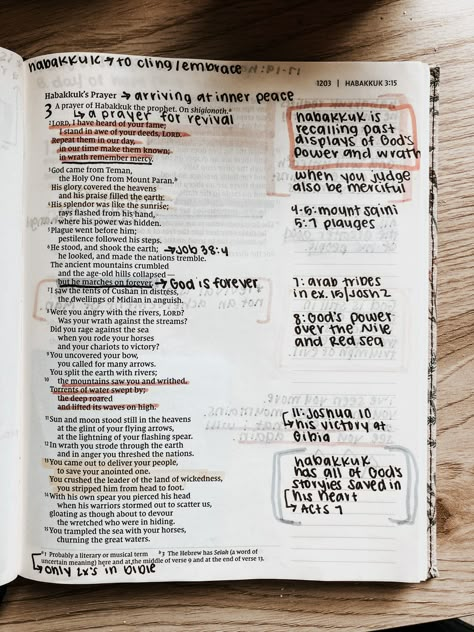 habakkuk → to cling/embrace
1203 | HABAKKUK 3:15
Habakkuk's Prayer → arriving at inner peace
3 A prayer of Habakkuk the prophet. On shigionoth.a
↳ a prayer for revival
2 LORD, I have heard of your fame;
I stand in awe of your deeds, LORD.
Repeat them in our day,
in our time make them known;
in wrath remember mercy.
3 God came from Teman,
the Holy One from Mount Paran.b
His glory covered the heavens
and his praise filled the earth.
4 His splendor was like the sunrise;
rays flashed from his hand,
where his power was hidden.
5 Plague went before him;
pestilence followed his steps.
6 He stood, and shook the earth; → Job 38:4
he looked, and made the nations tremble.
The ancient mountains crumbled
and the age-old hills collapsed—
but he marches on forever. → God is forever
7 I saw the tents of Cushan in distress,
the dwellings of Midian in anguish.
8 Were you angry with the rivers, LORD?
Was your wrath against the streams?
Did you rage against the sea
when you rode your horses
and your chariots to victory?
9 You uncovered your bow,
you called for many arrows.
You split the earth with rivers;
10 the mountains saw you and writhed.
Torrents of water swept by;
the deep roared
and lifted its waves on high.
11 Sun and moon stood still in the heavens
at the glint of your flying arrows,
at the lightning of your flashing spear.
12 In wrath you strode through the earth
and in anger you threshed the nations.
13 You came out to deliver your people,
to save your anointed one.
You crushed the leader of the land of wickedness,
you stripped him from head to foot.
14 With his own spear you pierced his head
when his warriors stormed out to scatter us,
gloating as though about to devour
the wretched who were in hiding.
15 You trampled the sea with your horses,
churning the great waters.
a 1 Probably a literary or musical term b 3 The Hebrew has Selah (a word of
uncertain meaning) here and at the middle of verse 9 and at the end of verse 13.
↳ only 2x's in Bible
habakkuk is
recalling past
displays of God's
power and wrath
when you judge
also be merciful
4-5: mount saini
5: 7 plauges
7: arab tribes
in ex. 15/Josh 2
8: God's power
over the Nile
and Red sea
11: Joshua 10
↳ his victory at
Gibia
habakkuk
has all of God's
storyies saved in
his heart
↳ Acts 7